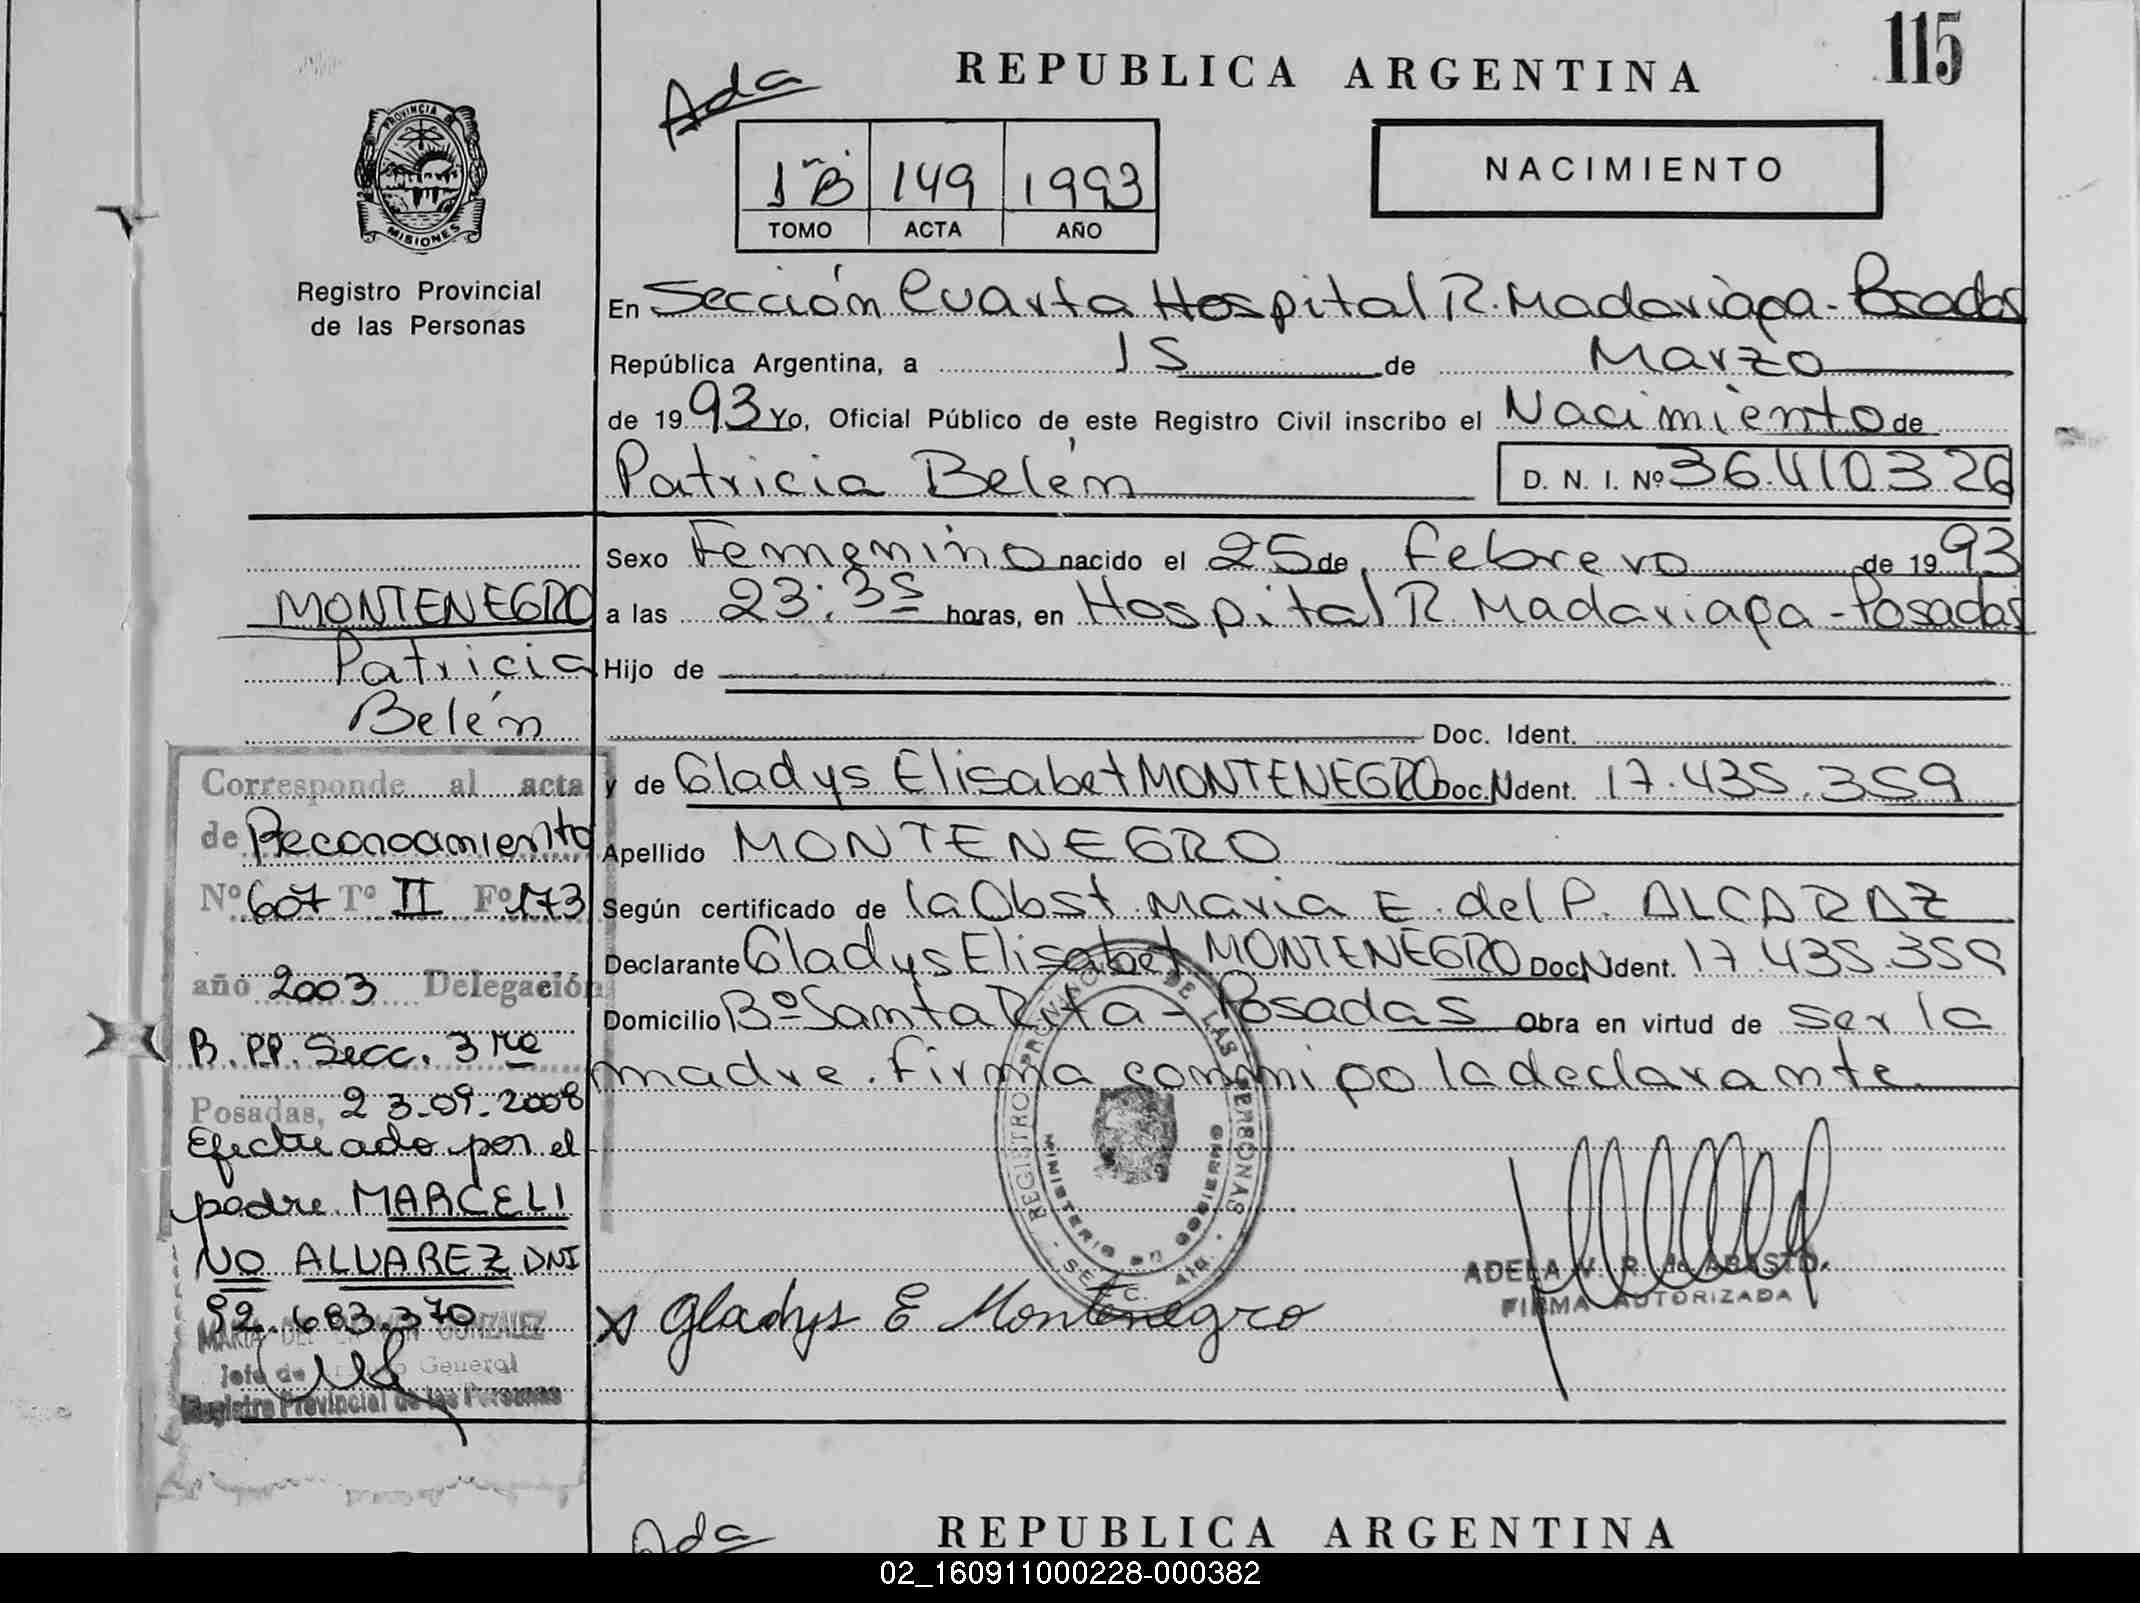 115
REPUBLICA ARGENTINA
Ada
NACIMIENTO
1º B 149 1993
TOMO ACTA AÑO
PROVINCIA DE MISIONES
Registro Provincial
de las Personas
En Sección Cuarta Hospital R. Madariaga - Posadas
República Argentina, a 15 de Marzo
de 1993 Yo, Oficial Público de este Registro Civil inscribo el Nacimiento de
Patricia Belén D. N. I. Nº 36.410.326
Sexo Femenino nacido el 25 de Febrero de 1993
a las 23:35 horas, en Hospital R. Madariaga - Posadas
Hijo de
Doc. Ident.
y de Gladys Elisabet MONTENEGRO Doc. N Ident. 17.435.359
Apellido MONTENEGRO
Según certificado de la Obst. Maria E. del P. ALCARAZ
Declarante Gladys Elisabet MONTENEGRO Doc N Ident. 17.435.359
Domicilio Bº Santa Rita - Posadas Obra en virtud de ser la
madre. Firma conmigo la declarante
MONTENEGRO
Patricia
Belén
Corresponde al acta
de Reconocimiento
Nº 607 Tº II Fº 173
año 2003 Delegación
R. PP. Secc. 3ra
Posadas, 23-09-2008
Efectuado por el
padre MARCELI
NO ALVAREZ DNI
92.683.370
GONZALEZ
Jefe de General
Registro Provincial de las Personas
REGISTRO PROVINCIAL DE LAS PERSONAS
MINISTERIO DE GOBIERNO
SECC. 4ta.
x Gladys E Montenegro
ADELA V. R. de ABASTO
FIRMA AUTORIZADA
Ada
REPUBLICA ARGENTINA
02_160911000228-000382